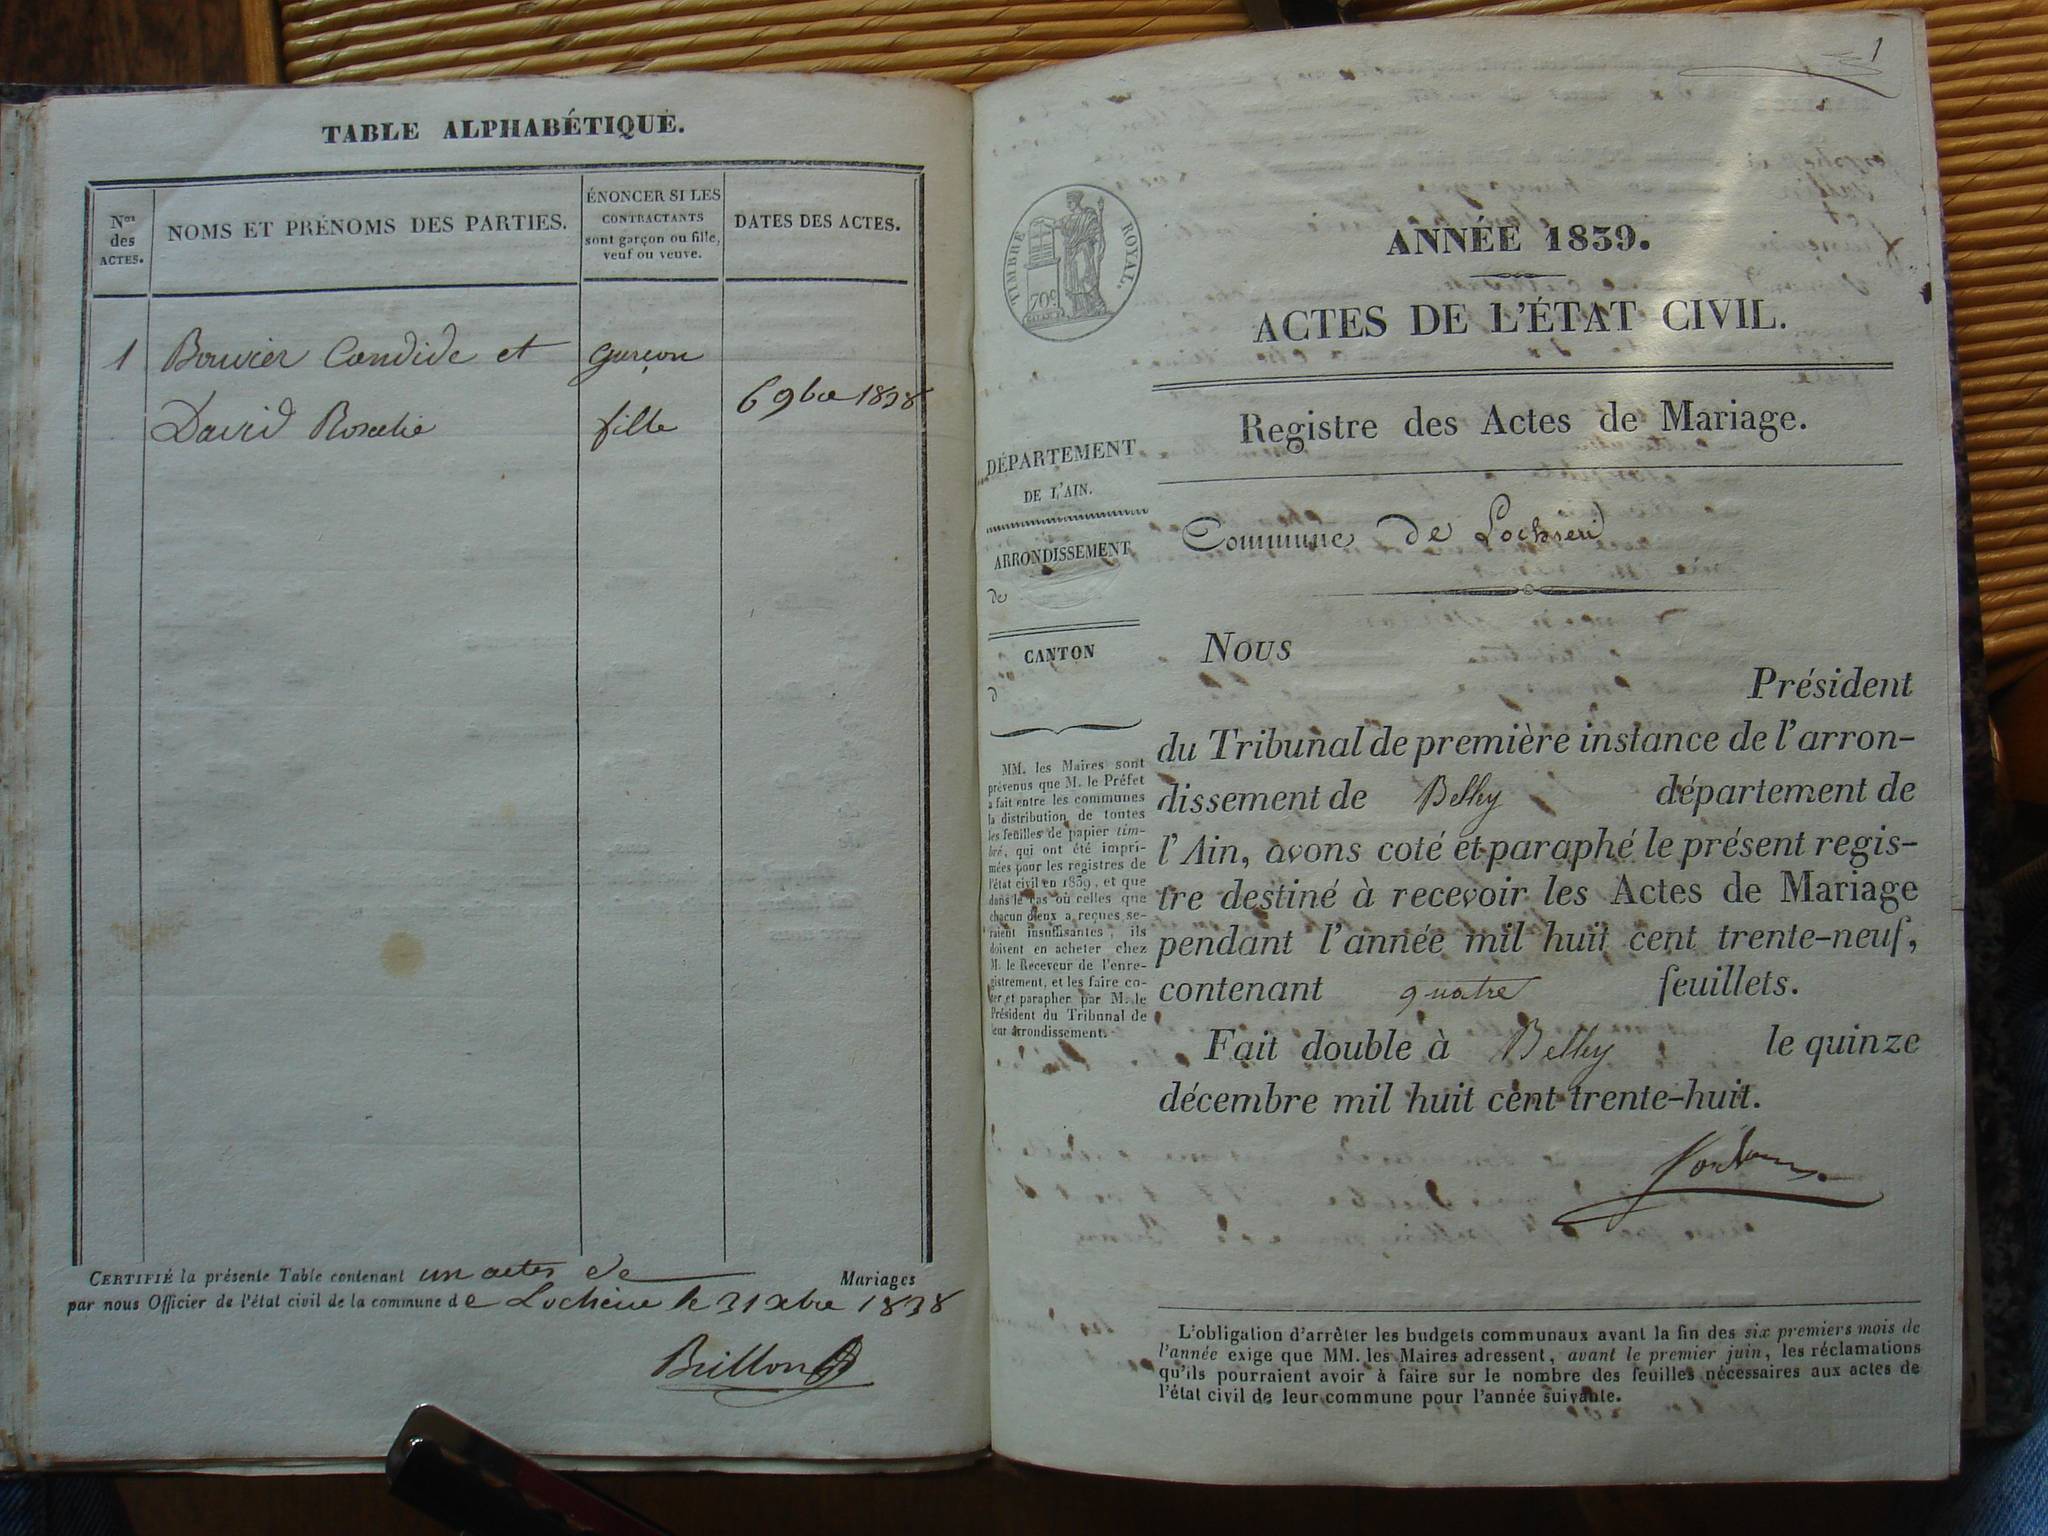 TABLE ALPHABÉTIQUE.
Nos des ACTES.
NOMS ET PRÉNOMS DES PARTIES.
ÉNONCER SI LES
CONTRACTANTS
sont garçon ou fille,
veuf ou veuve.
DATES DES ACTES.
1 Bouvier Candide et garçon
6 9bre 1838
David Rosalie fille
CERTIFIÉ la présente Table contenant un actes de Mariages
par nous Officier de l'état civil de la commune de Lochieu le 31 xbre 1838
Brillon
1
TIMBRE ROYAL.
70c
ANNÉE 1839.
ACTES DE L'ÉTAT CIVIL.
Registre des Actes de Mariage.
Commune de Lochieu
DÉPARTEMENT
DE L'AIN.
ARRONDISSEMENT
de
CANTON
d
MM. les Maires sont
prévenus que M. le Préfet
a fait entre les communes
la distribution de toutes
les feuilles de papier tim-
bré, qui ont été impri-
mées pour les registres de
l'état civil en 1839, et que
dans le cas où celles que
chacun d'eux a reçues se-
raient insuffisantes, ils
doivent en acheter chez
M. le Receveur de l'enre-
gistrement, et les faire co-
ter et parapher par M. le
Président du Tribunal de
leur arrondissement.
Nous
Président
du Tribunal de première instance de l'arron-
dissement de Belley département de
l'Ain, avons coté et paraphé le présent regis-
tre destiné à recevoir les Actes de Mariage
pendant l'année mil huit cent trente-neuf,
contenant quatre feuillets.
Fait double à Belley le quinze
décembre mil huit cent trente-huit.
L'obligation d'arrêter les budgets communaux avant la fin des six premiers mois de
l'année exige que MM. les Maires adressent, avant le premier juin, les réclamations
qu'ils pourraient avoir à faire sur le nombre des feuilles nécessaires aux actes de
l'état civil de leur commune pour l'année suivante.